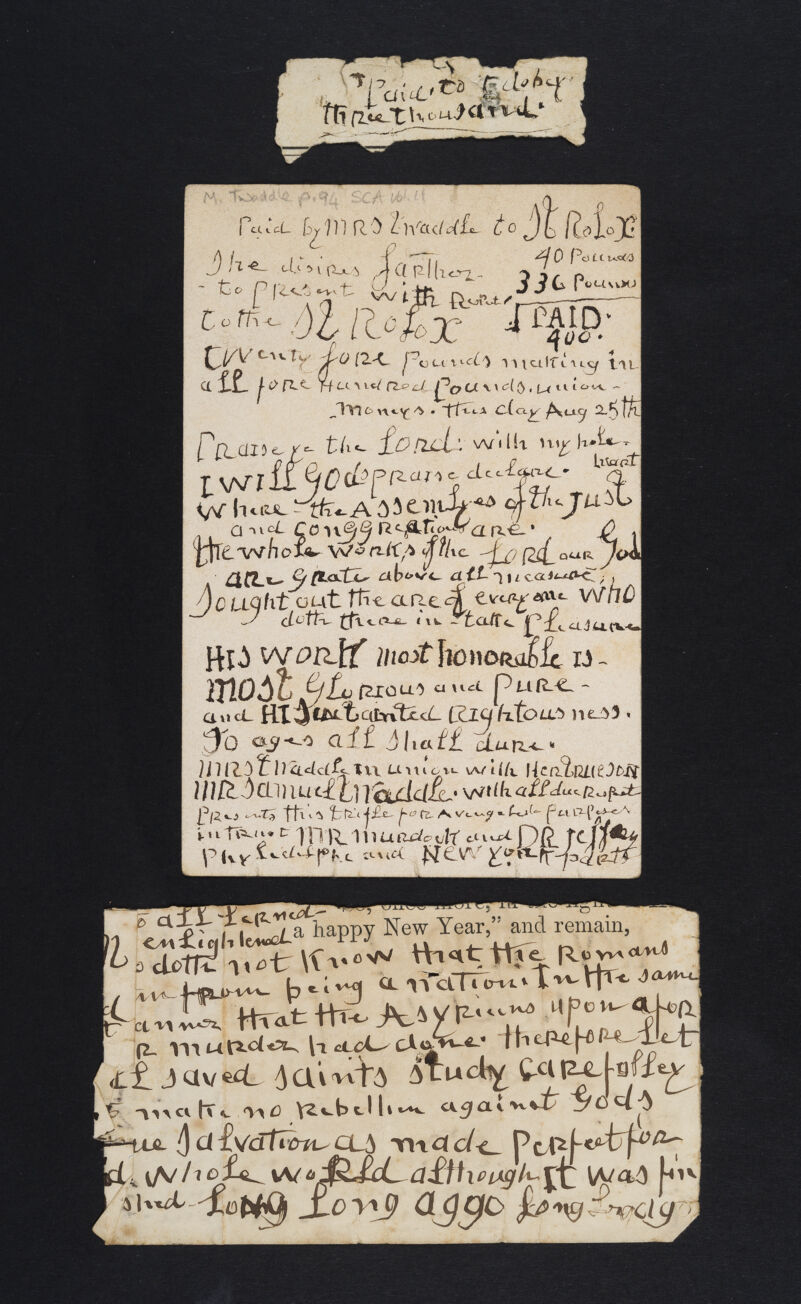 Paid to
three thousand.
M. Twaddle p.94 SCA Vol.11
Paid by MRS Twaddle to St Rolox
She disires farther 40 Pounds
to Present with 336 Pounds
to the St Rolox PAID.
400.
twenty fore Pounds making in
all fore Hundred Pounds. union
moneys. this day Aug 25th
Praise ye the LORD: with my hole
heart
I WILL GODS praise declare.
Where the ASSEMLyes of the JUST
and CONGGREgATION are.
the whole works of the LORD our God
are grate above all measure,
Sought out the are of every one WHO
doth there in take Pleasure
HIS WORK most honorable IS -
MOST GLORIOUS and PURE -
and HIS untainted RIghtousness.
To ages all Shall dure.
MRS Twaddle in union with Her TRUE SON
MR Samuel Twaddle. with all due Respet
Presents this trifle for
in trust MR Murdock and DR Jeffrey
and NEW YORK parts
o all lerned once more,
enlightened a happy New Year,” and remain,
o doth not Know that the Romans
from being a nation. In the same
anner that the Asyrians upon afor
R murder had done. therefore Let
ll saved saints study carefolley
make no Rebellion against Gods
ue Salvation as made Perfect for
d. whole world although It was fin
shed Long Long aggo Long